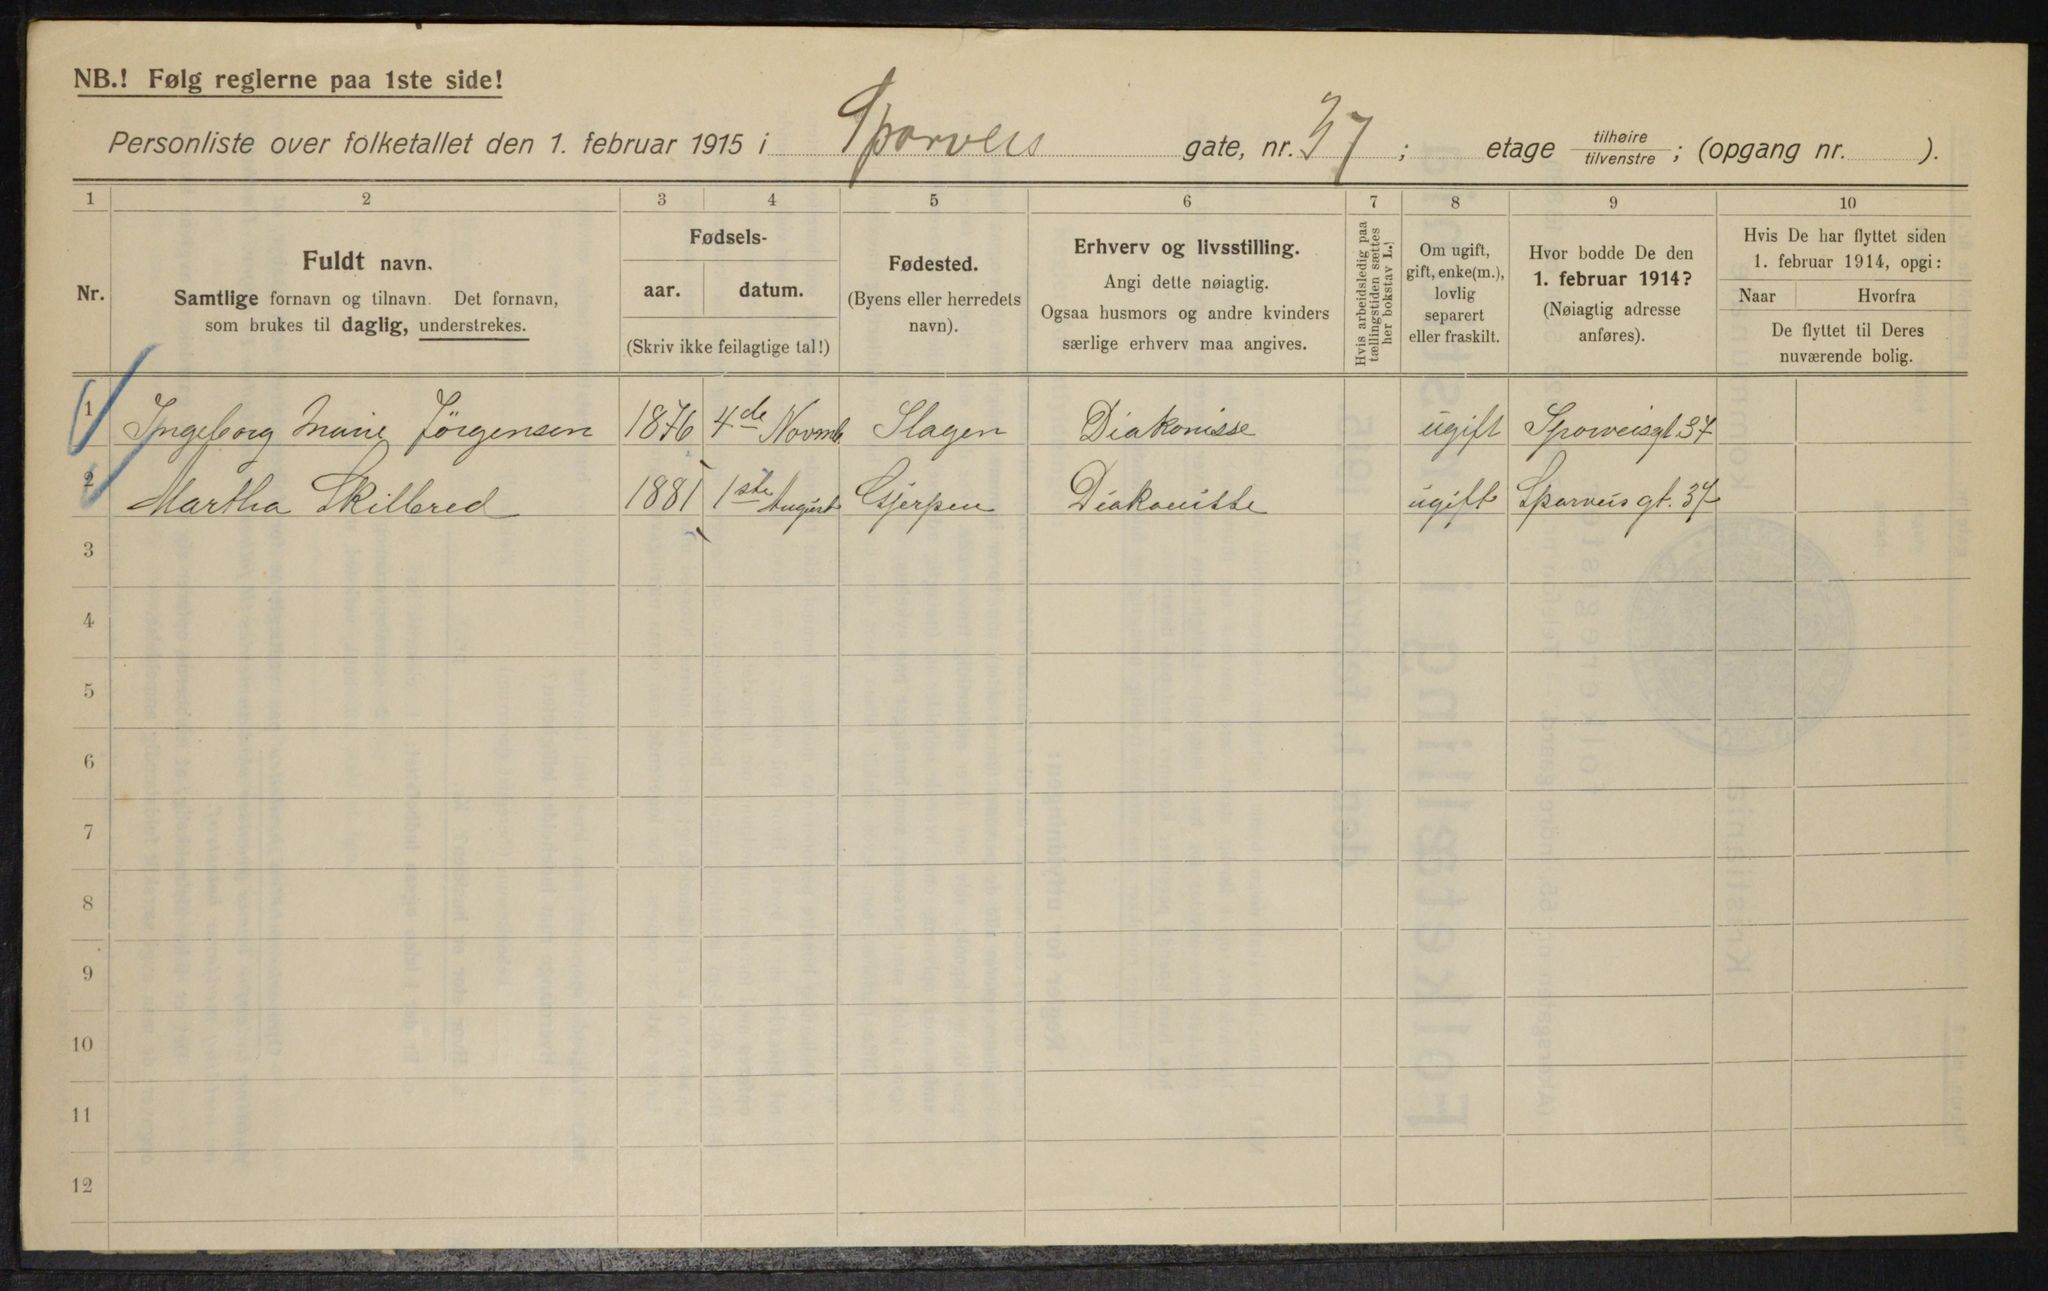 NB.! Følg reglerne paa 1ste side!
Personliste over folketallet den 1. februar 1915 i Sporveis gate, nr. 37; etage tilhøire/tilvenstre; (opgang nr. ).
1 2 3 4 5 6 7 8 9 10
Nr.
Fuldt navn.
Samtlige fornavn og tilnavn. Det fornavn,
som brukes til daglig, understrekes.
Fødsels-
aar. datum.
(Skriv ikke feilagtige tal!)
Fødested.
(Byens eller herredets
navn).
Erhverv og livsstilling.
Angi dette nøiagtig.
Ogsaa husmors og andre kvinders
særlige erhverv maa angives.
Hvis arbeidsledig paa
tællingstiden sættes
her bokstav L.!
Om ugift,
gift, enke(m.),
lovlig
separert
eller fraskilt.
Hvor bodde De den
1. februar 1914?
(Nøiagtig adresse
anføres).
Hvis De har flyttet siden
1. februar 1914, opgi:
Naar Hvorfra
De flyttet til Deres
nuværende bolig.
1 Ingeborg Marie Jørgensen 1876 4de Novmb Slagen Diakonisse ugift Sporveisgt. 37
2 Martha Skilbred 1881 1ste August Gjerpen Diakonisse ugift Sporveisgt. 37
3
4
5
6
7
8
9
10
11
12